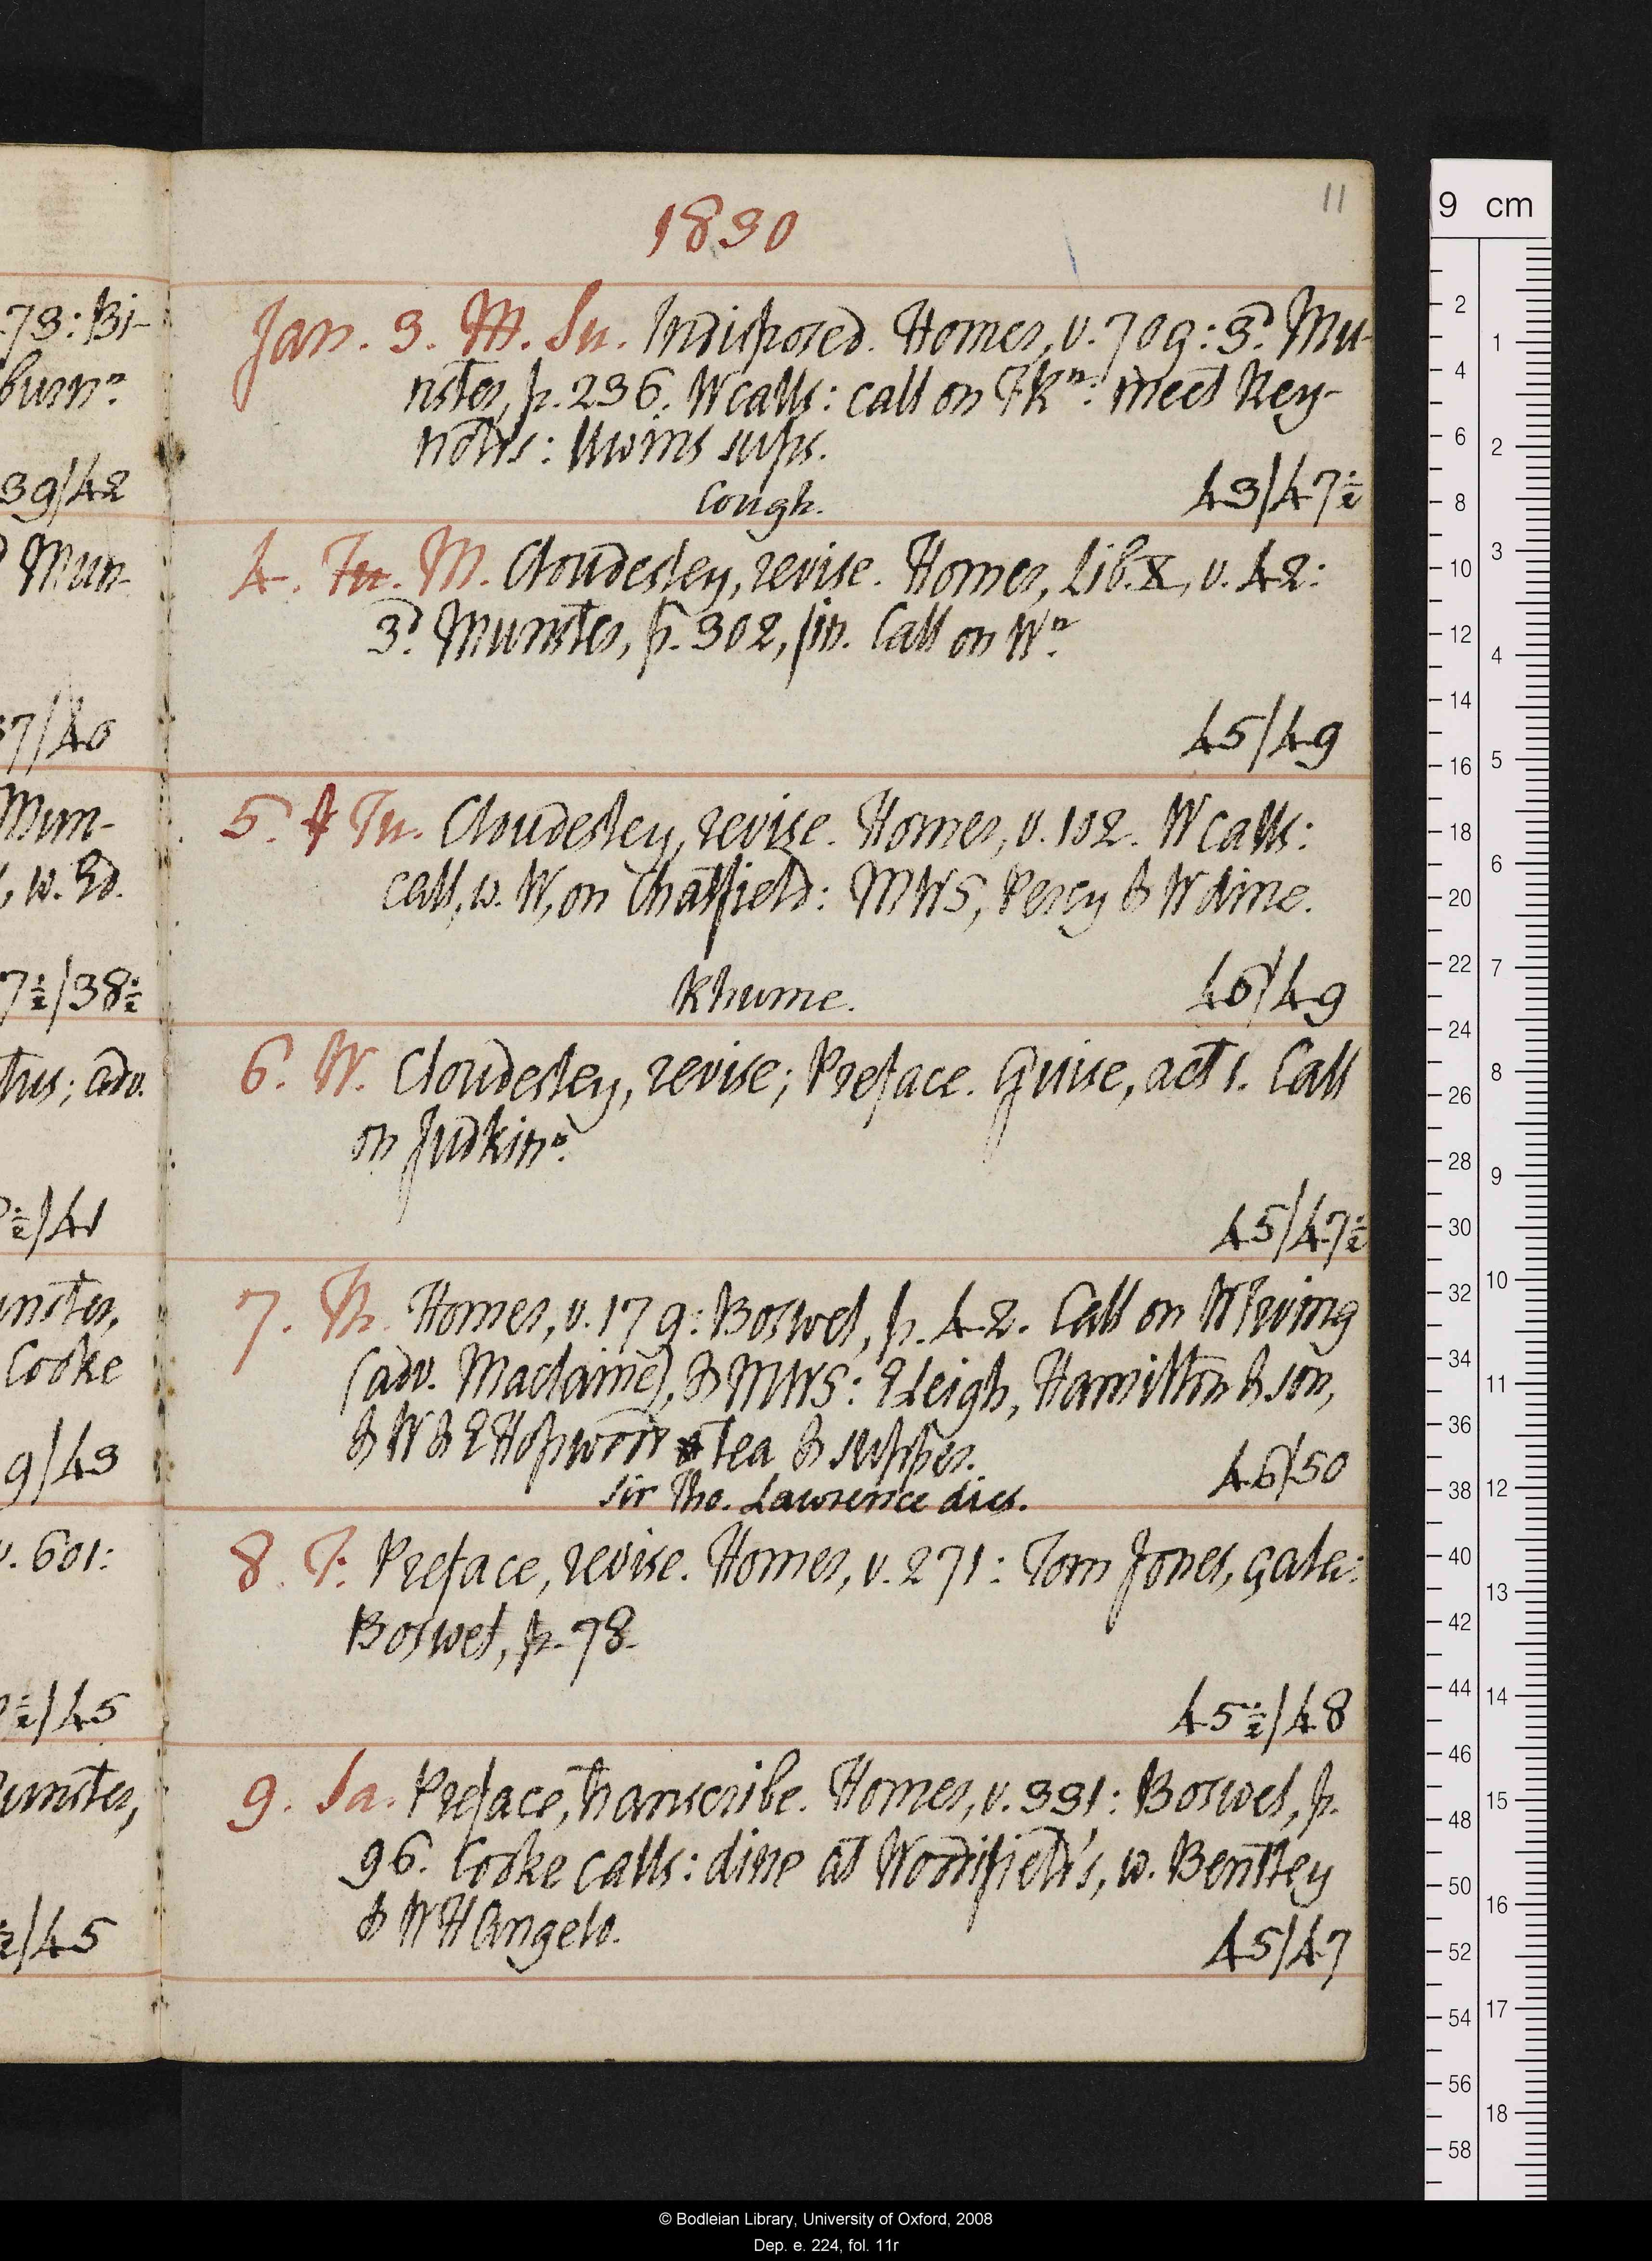 73: Bi-
burnⁿ.
39/42
Mun-
37/40
Mun-
, w. Ed.
7½/38½
tus; adv.
½/41
unster,
Cooke
9/43
v. 601:
½/45
unster,
½/45
11
1830
Jan. 3. M. Su. Indisposed. Homer, v. 709: 3ᵈ. Mu-
nster, p. 236. W calls: call on FKⁿ: meet Rey-
nolds: Uwins sups.
Cough. 43/47½
4. Tu. M. Cloudesley, revise. Homer, Lib. X, v. 42:
3ᵈ. Munster, p. 302, fin. Call on Wⁿ.
45/49
5. Tu. Cloudesley, revise. Homer, v. 102. W calls:
call, w. W, on Chatfield: MWS, Percy & W dine.
Rhume. 46/49
6. W. Cloudesley, revise; Preface. Guise, act 1. Call
on Judkinⁿ.
45/47½
7. Th. Homer, v. 179: Boswel, p. 42. Call on W Irving
(adv. Maclaine), & MWS: E Leigh, Hamilton & son,
& W & E Hopwood tea & supper.
Sir Tho. Lawrence dies. 46/50
8. F. Preface, revise. Homer, v. 271: Tom Jones, çala:
Boswel, p. 78.
45½/48
9. Sa. Preface, transcribe. Homer, v. 331: Boswel, p.
96. Cooke calls: dine at Woodifield's, w. Bentley
& W H Angelo. 45/47
9 cm
2
4
6
8
10
12
14
16
18
20
22
24
26
28
30
32
34
36
38
40
42
44
46
48
50
52
54
56
58
1
2
3
4
5
6
7
8
9
10
11
12
13
14
15
16
17
18
© Bodleian Library, University of Oxford, 2008
Dep. e. 224, fol. 11r